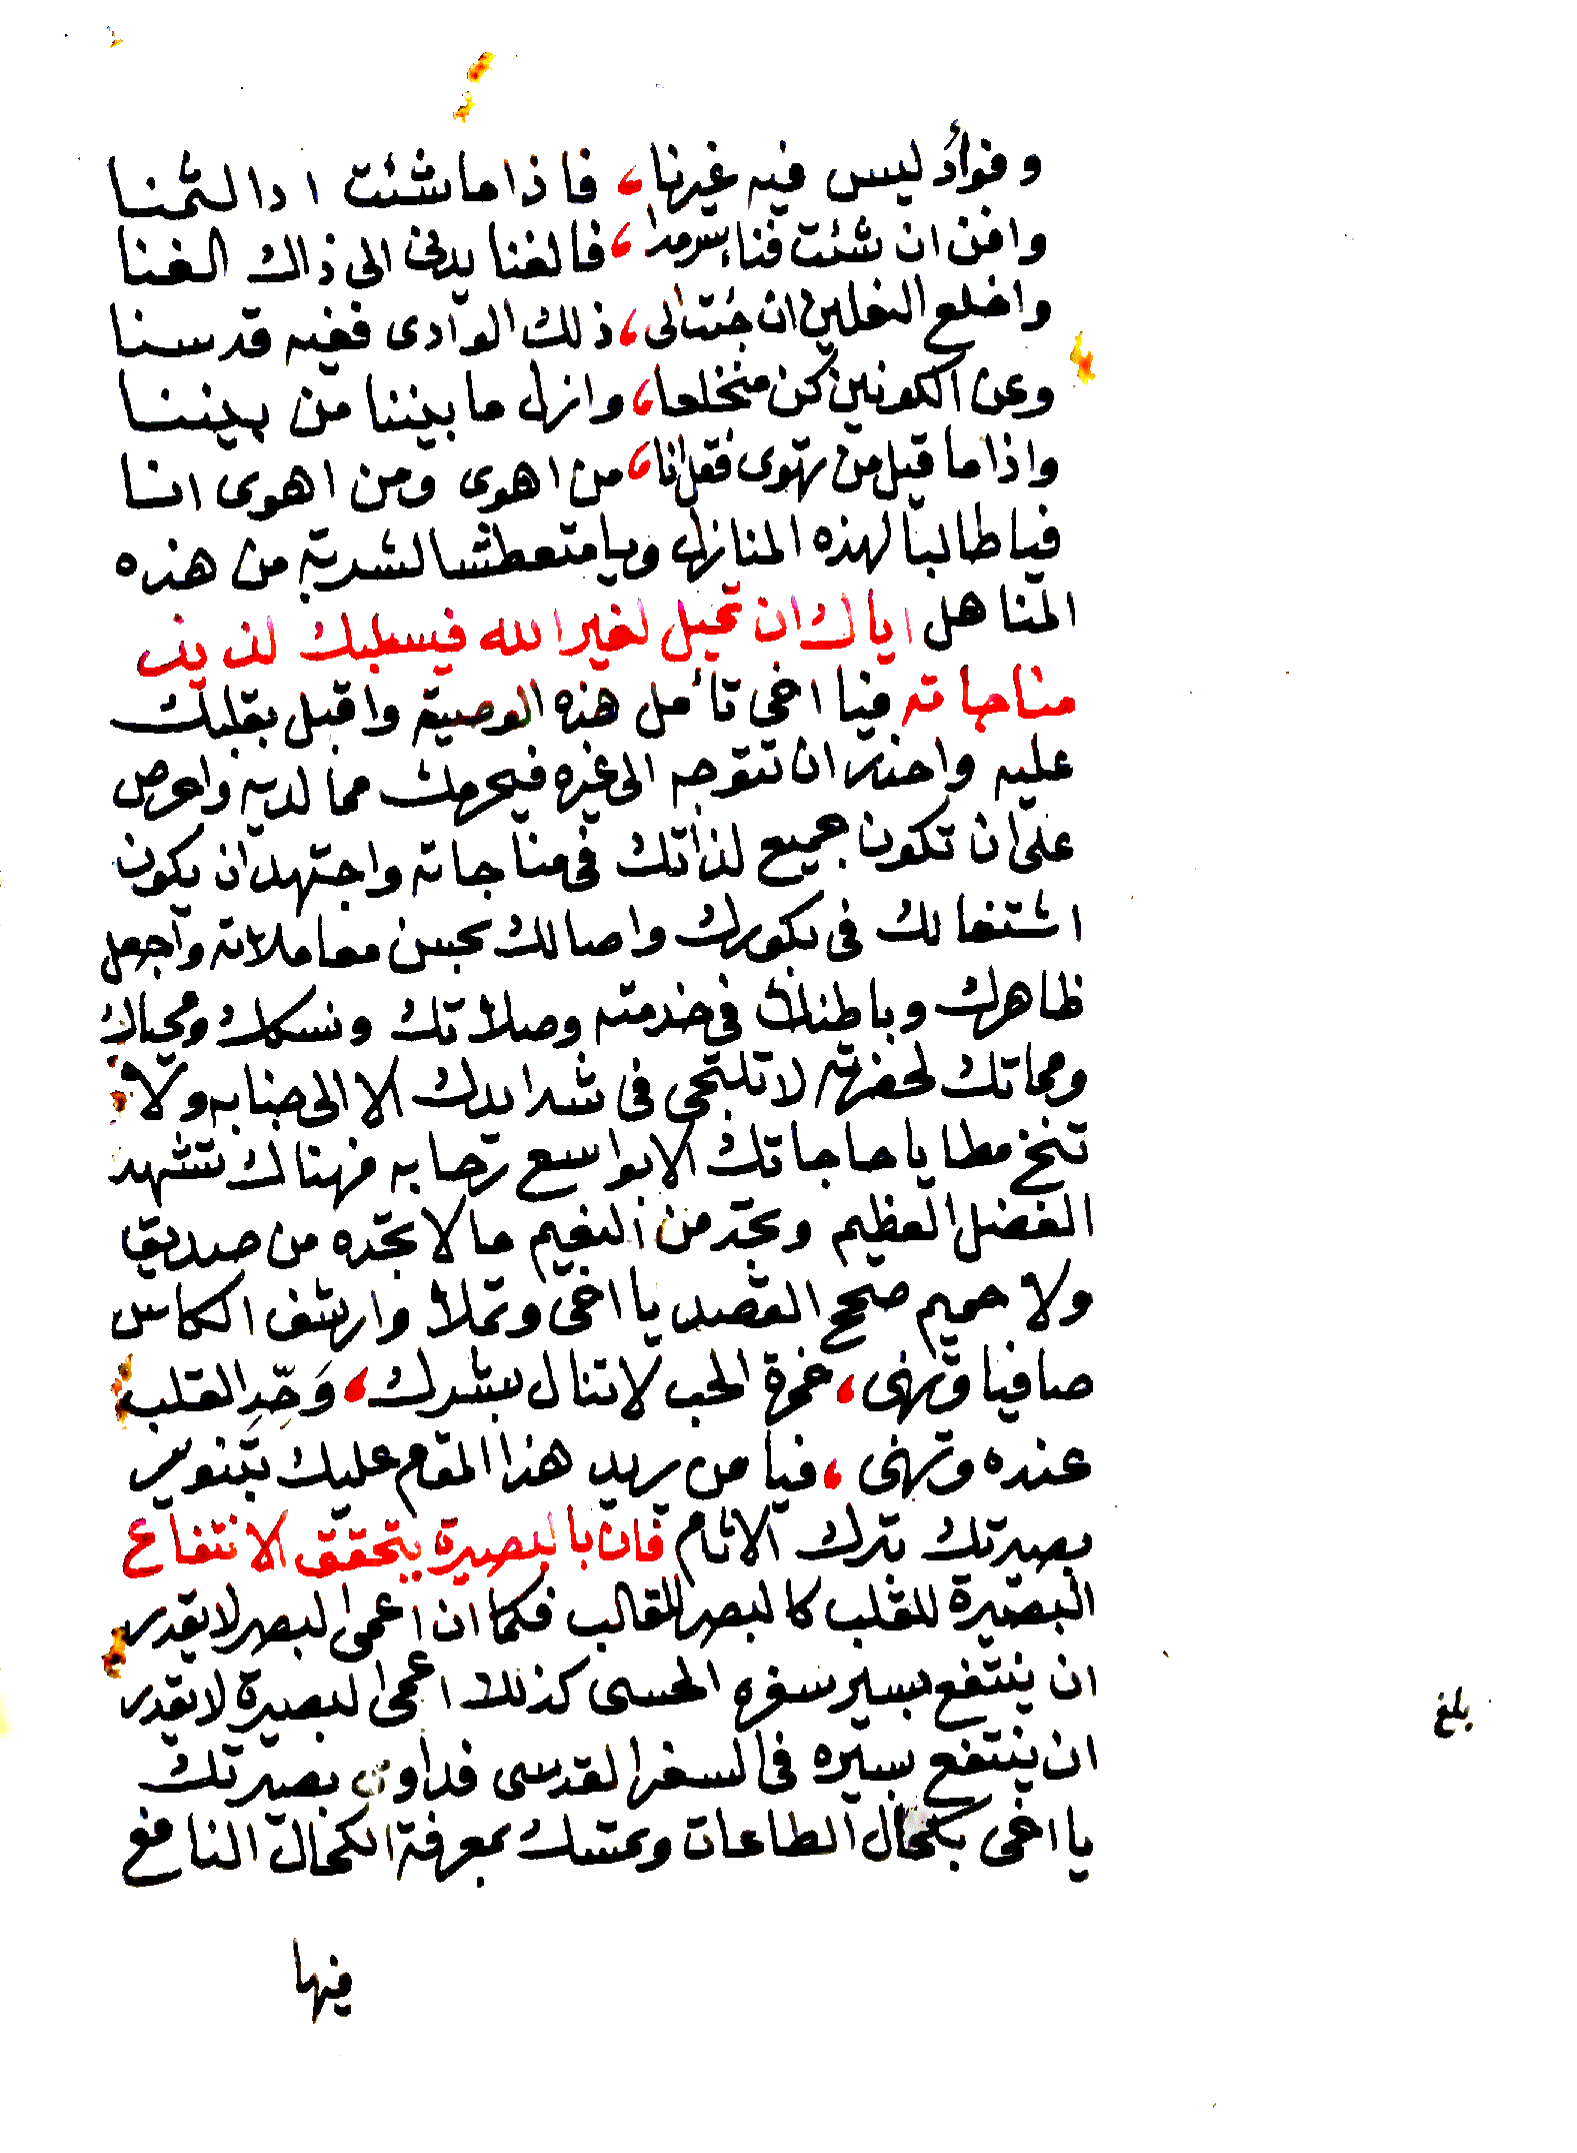 وفوأد ليس فيه غيرنا، فاذا ما شئت ادا لثمنا
وافن ان شئت فناء سرمدا، فالفنا يدنى الى ذاك الفنا
واخلع النعلين ان جئت الى، ذلك الوادى ففيه قدسنا
وعن الكونين كن منخلعا، وازل ما بيننا من بيننا
واذا ما قيل من تهوى فقل انا، من اهوى ومن اهوى انا
فيا طالبا لهذه المنازل ويا متعطشا لشربة من هذه
المناهل اياك ان تميل لغير الله فيسلبك لذيذ
مناجاته فيا اخى تأمل هذه الوصية واقبل بقلبك
عليه واحذر ان تتوجه الى غيره فيحرمك مما لديه واحرص
على ان تكون جميع لذاتك فى مناجاته واجتهد ان يكون
اشتغالك فى بكورك واصالك بحسن معاملاته واجعل
ظاهرك وباطنك فى خدمته وصلاتك ونسكك ومحياك
ومماتك لحضرته لا تلتجى فى شدايدك الا الى جنابه ولا
تنخ مطايا حاجاتك الا بواسع رحابه فهناك تشهد
الفضل العظيم وتجد من النعيم ما لا تجده من صديق
ولا حميم صحح القصد يا اخى وتملا وارشف الكاس
صافيا وتهنى، خمرة الحب لا تنال بشرك، وَحِّدِ القلب
عنده وتهنى، فيا من يريد هذا المقام عليك بتنوير
بصيرتك بترك الاثام فان بالبصيرة يتحقق الانتفاع
البصيرة للقلب كالبصر للقالب فكما ان اعمى البصر لا يقدر
ان ينتفع بسير سفره الحسى كذلك اعمى البصيرة لا يقدر
ان ينتفع بسيره فى السفر القدسى فداوى بصيرتك
يا اخى بكحال الطاعات وتمسك بمعرفة الكحال النافع
بلغ
فيها